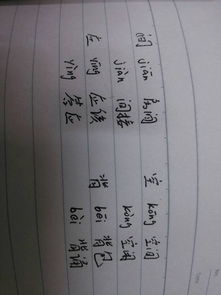 间 jiān 房间 空 kōng 空间
jiàn 间接 kòng 空闲
应 yīng 应该 背 bēi 背包
yìng 答应 bèi 背诵